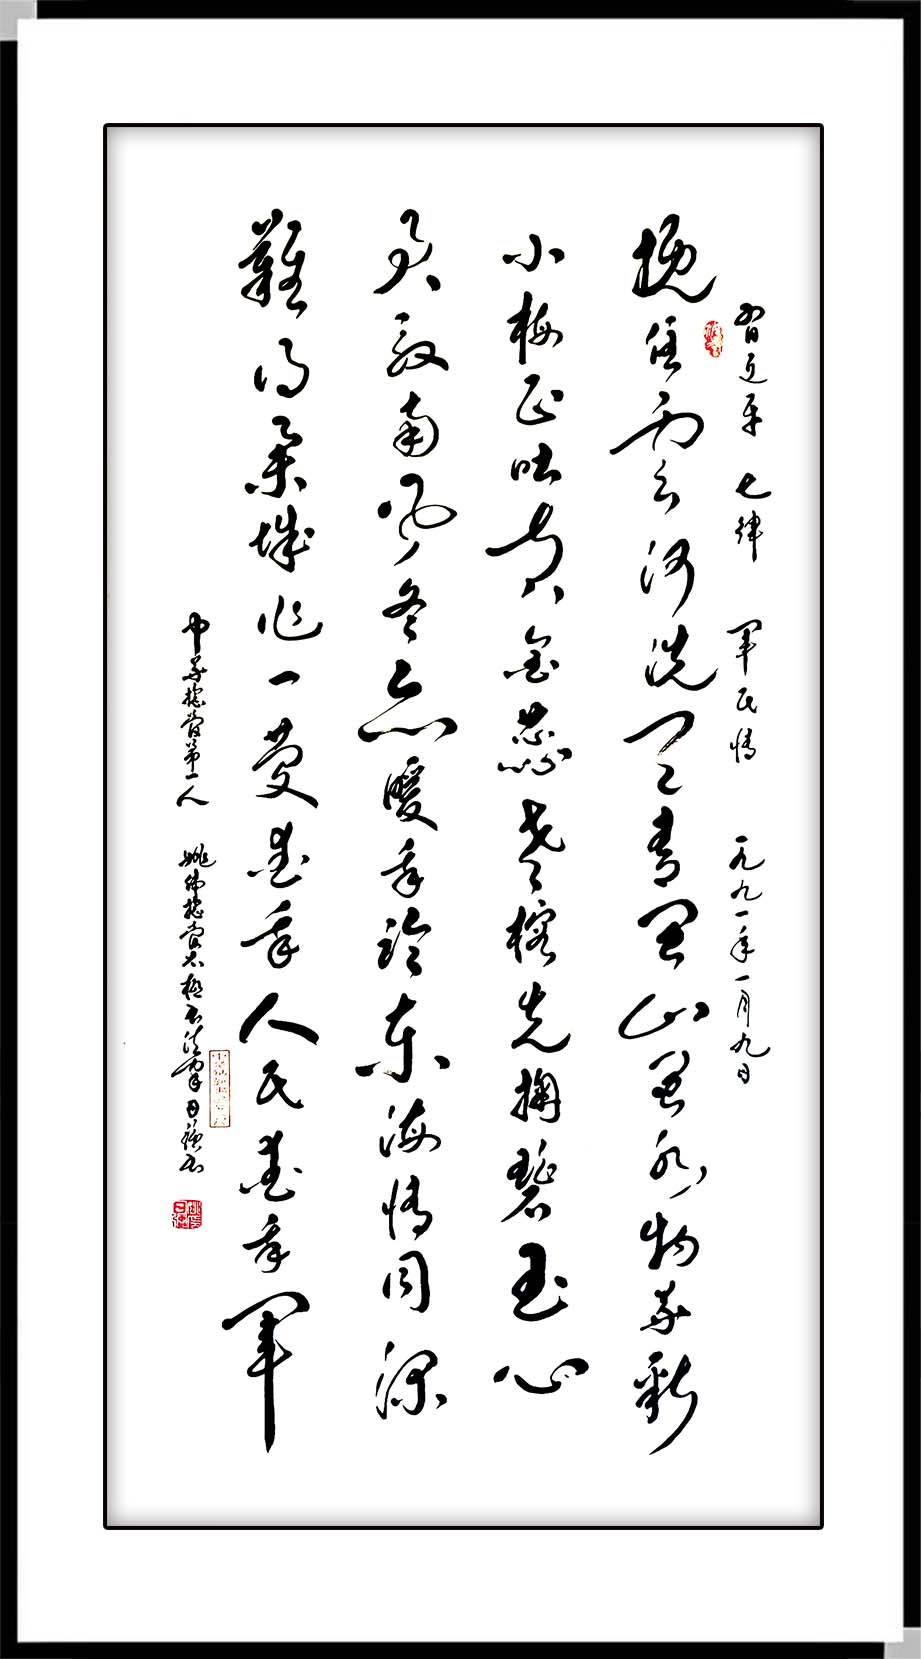 習近平 七律 軍民情 一九九一年一月九日
挽住雲河洗天青闽山闽水物華新
小梅正吐黄金蕊老榕先掬碧玉心
君驭南風冬亦暖我临東海情同深
難得举城作一慶爱我人民爱我軍
第一人